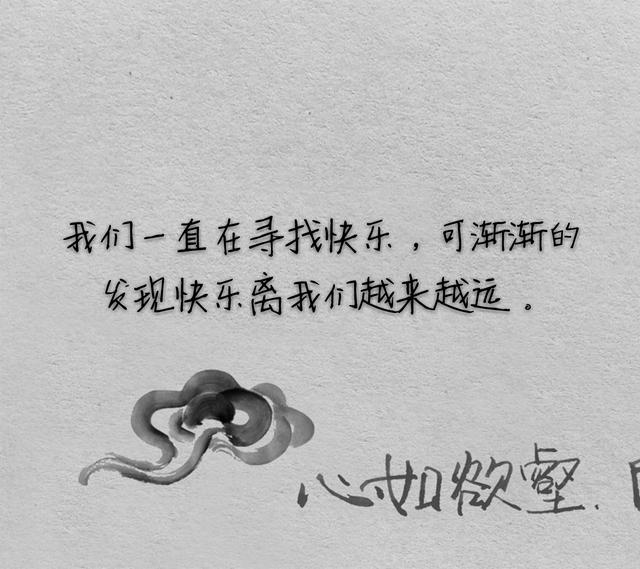 我们一直在寻找快乐，可渐渐的
发现快乐离我们越来越远。
心如欲壑.